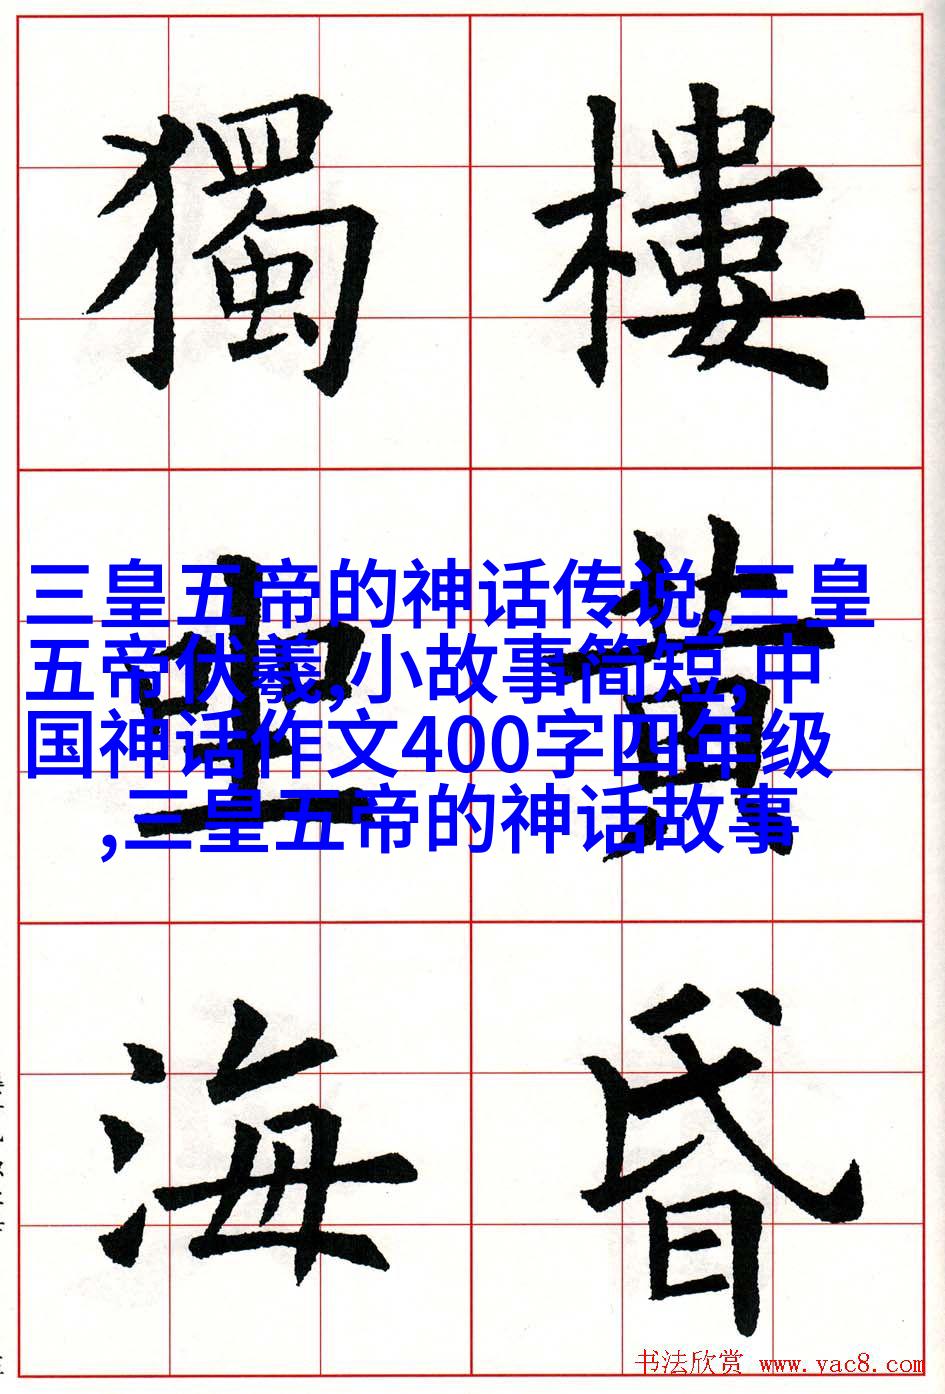 樓黄昏
獨海
三皇五帝的神话传说,三皇
五帝伏羲,小故事简短,中
国神话作文400字四年级
,三皇五帝的神话故事
书法欣赏 www.yac8.com